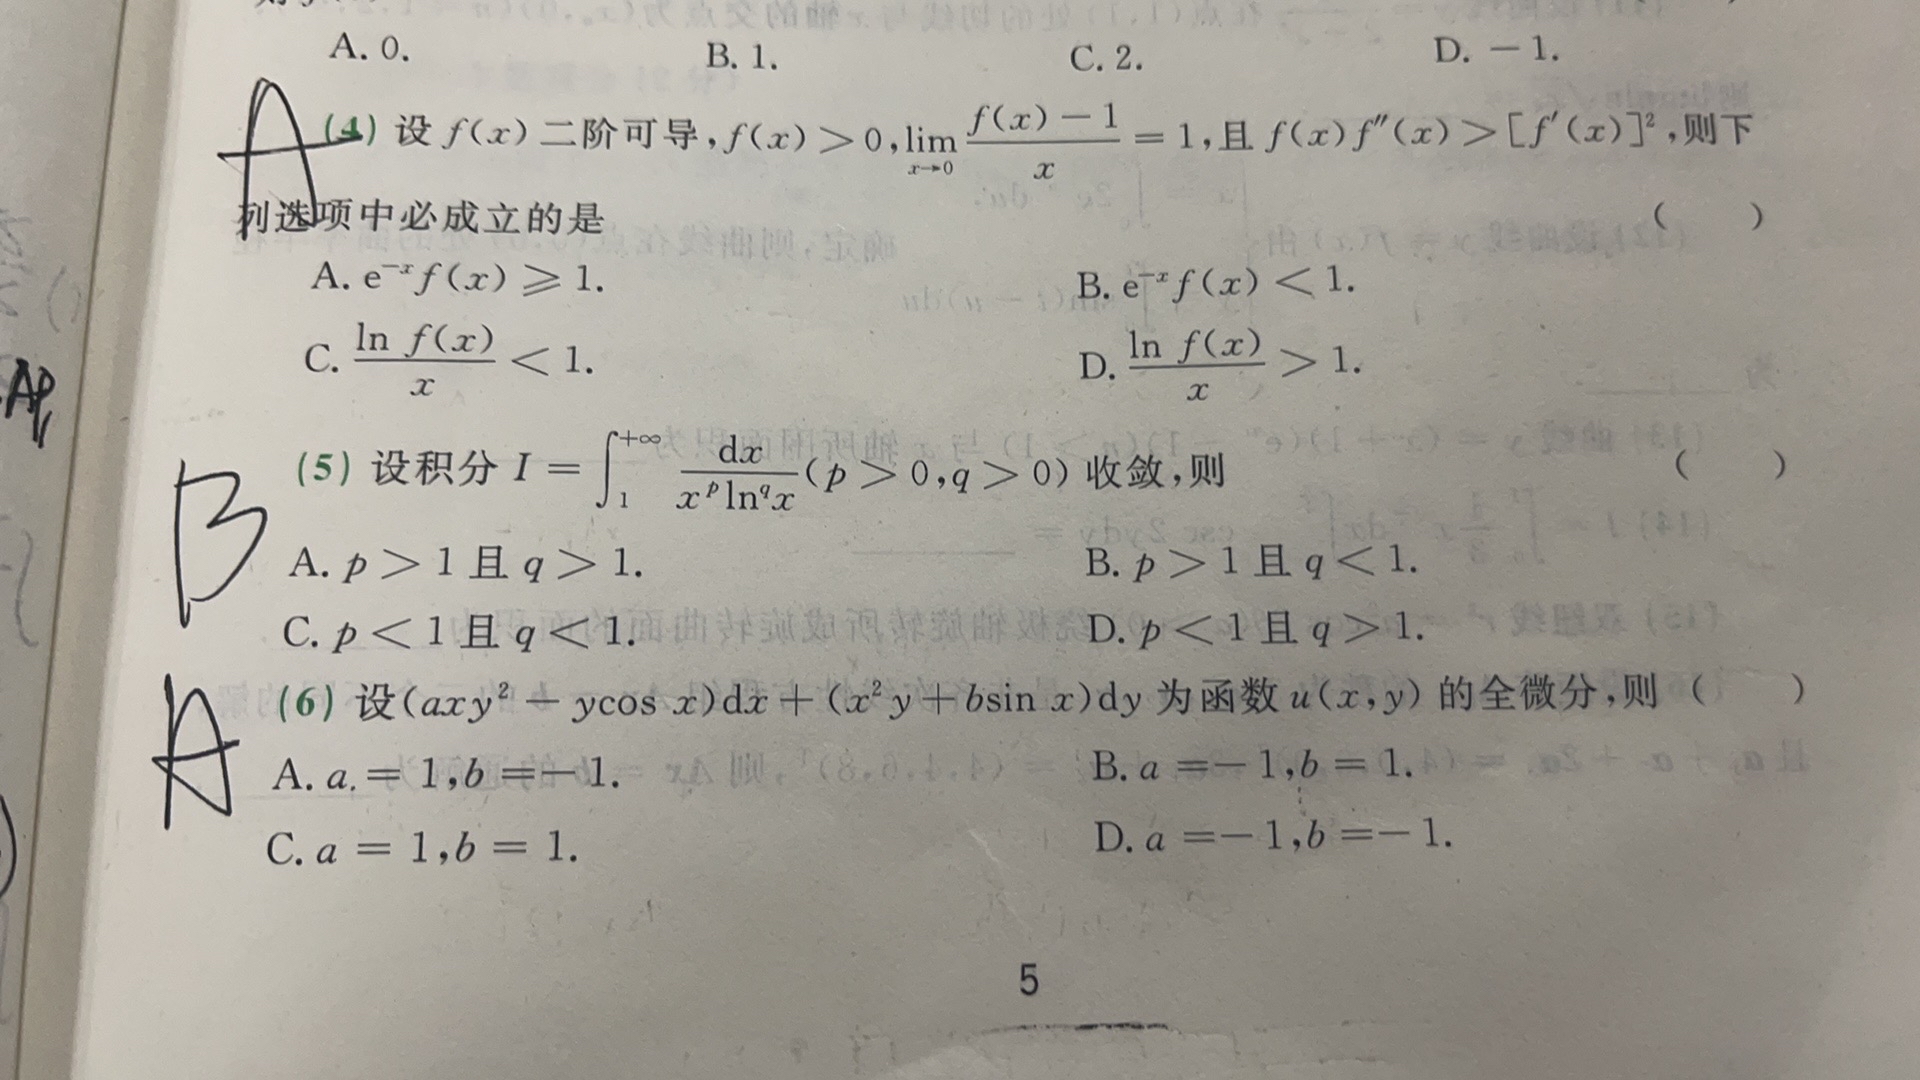 A. 0. B. 1. C. 2. D. －1.
A (4) 设 f(x) 二阶可导, f(x) > 0, lim_{x→0} \frac{f(x)－1}{x} = 1, 且 f(x)f″(x) > [f′(x)]², 则下
列选项中必成立的是 ( )
A. e^{-x} f(x) ⩾ 1. B. e^{-x} f(x) < 1.
C. \frac{ln f(x)}{x} < 1. D. \frac{ln f(x)}{x} > 1.
AP
B (5) 设积分 I = ∫_1^{+∞} \frac{dx}{x^p ln^q x} (p > 0, q > 0) 收敛, 则 ( )
A. p > 1 且 q > 1. B. p > 1 且 q < 1.
C. p < 1 且 q < 1. D. p < 1 且 q > 1.
A (6) 设 (axy² － ycos x)dx + (x²y + bsin x)dy 为函数 u(x,y) 的全微分, 则 ( )
A. a = 1, b =－1. B. a =－1, b = 1.
C. a = 1, b = 1. D. a =－1, b =－1.
5